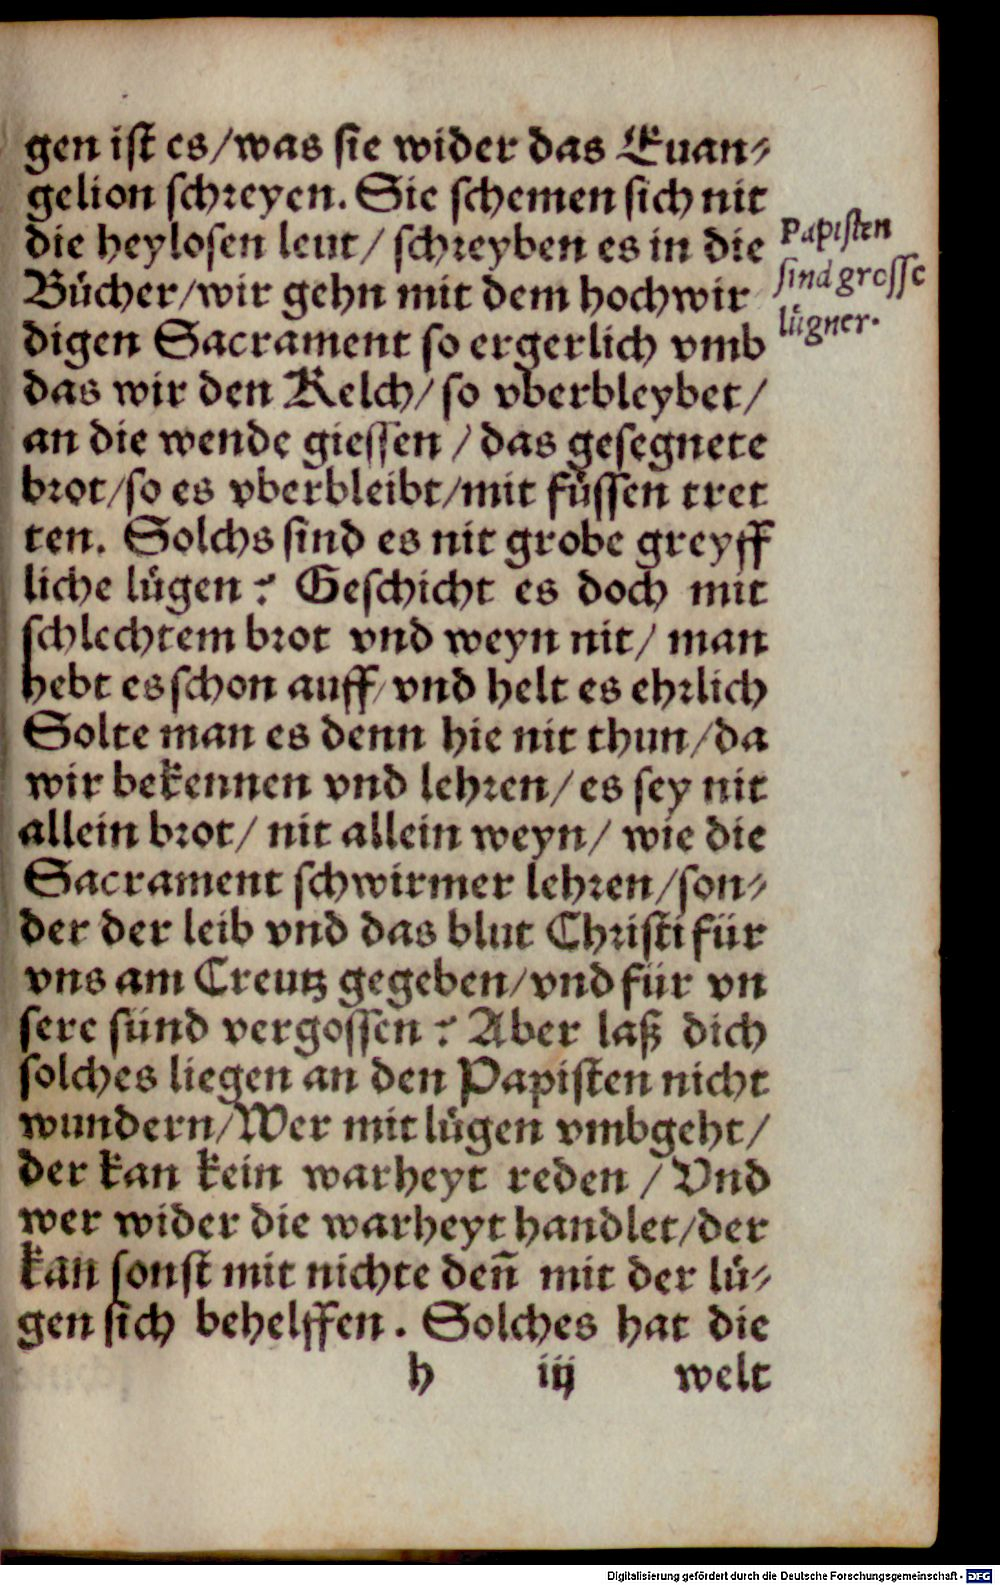 gen ist es/was sie wider das Euan⸗
gelion schreyen. Sie schemen sich nit
die heylosen leut/ schreyben es in die
Bücher/wir gehn mit dem hochwir
digen Sacrament so ergerlich vmb
das wir den Kelch/ so vberbleybet/
an die wende giessen / das gesegnete
brot/so es vberbleibt/mit füssen tret
ten. Solchs sind es nit grobe greyff
liche lügen? Geschicht es doch mit
schlechtem brot vnd weyn nit/ man
hebt es schon auff/ vnd helt es ehrlich
Solte man es denn hie nit thun/da
wir bekennen vnd lehren/ es sey nit
allein brot/ nit allein weyn/ wie die
Sacrament schwirmer lehren/son⸗
der der leib vnd das blut Christi für
vns am Creutz gegeben/vnd für vn
sere sünd vergossen? Aber laß dich
solches liegen an den Papisten nicht
wundern/Wer mit lügen vmbgeht/
der kan kein warheyt reden / Vnd
wer wider die warheyt handlet/der
kan sonst mit nichte deñ mit der lü⸗
gen sich behelffen. Solches hat die
h iij welt
Papisten
sind grosse
lügner.
Digitalisierung gefördert durch die Deutsche Forschungsgemeinschaft - DFG